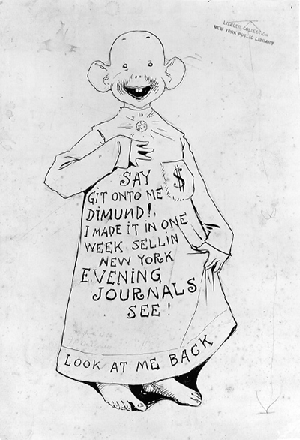 SAY
GIT ONTO ME
DIMUND!
I MADE IT IN ONE
WEEK SELLIN
NEW YORK
EVENING
JOURNALS
SEE!
$
LOOK AT ME BACK
NEW YORK PUBLIC LIBRARY